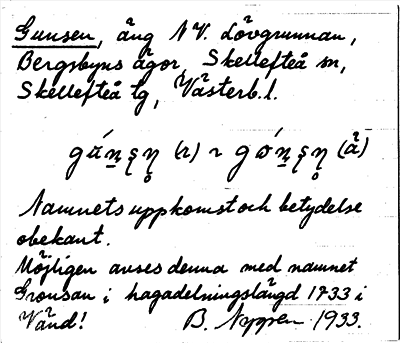 Gunsen, äng N.V. Lövgrunnan,
Bergsbyns ägor, Skellefteå sn,
Skellefteå tg, Västerb. l.
(2) ~ (å)
Namnets uppkomst och betydelse
obekant.
Möjligen avses denna med namnet
Gronsan i hagadelningslängd 1733 i
Vänd! B. Nygren 1933.